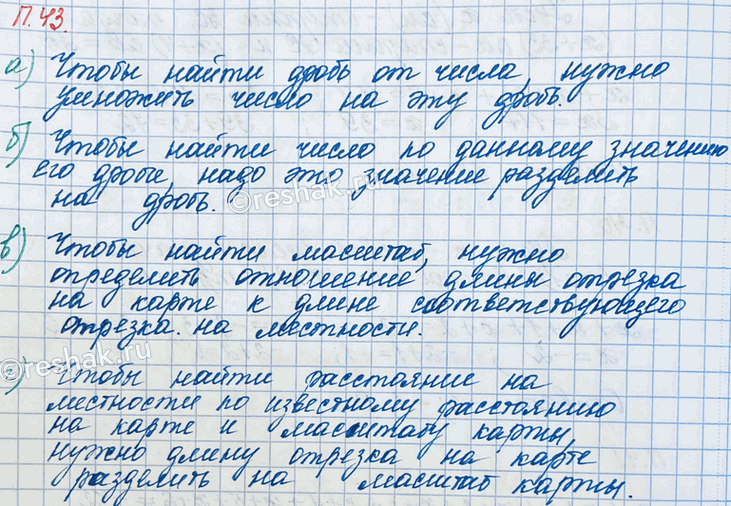 П.43.
а) Чтобы найти дробь от числа, нужно
умножить число на эту дробь.
б) Чтобы найти число по данному значению
его дроби, надо это значение разделить
на дробь.
©reshak.ru
в) Чтобы найти масштаб, нужно
определить отношение длины отрезка
на карте к длине соответствующего
отрезка на местности.
©reshak.ru
г) Чтобы найти расстояние на
местности по известному расстоянию
на карте и масштабу карты,
нужно длину отрезка на карте
разделить на масштаб карты.